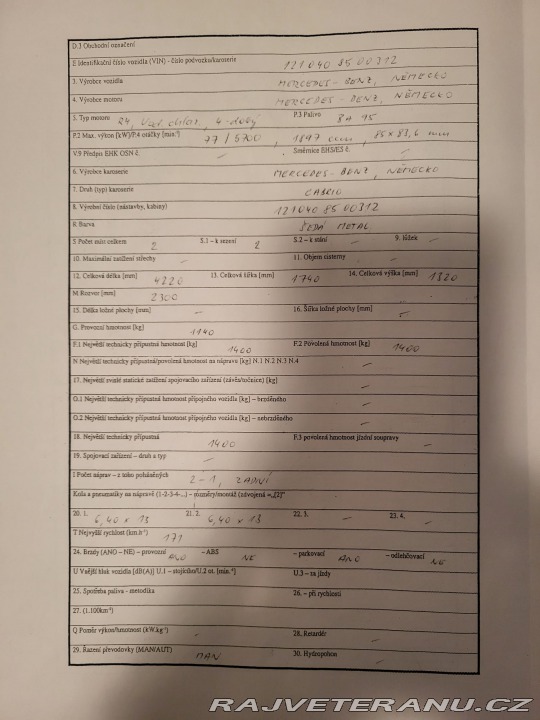 D.3 Obchodní označení
E Identifikační číslo vozidla (VIN) - číslo podvozku/karoserie 121040 85 00312
3. Výrobce vozidla MERCEDES - BENZ, NĚMECKO
4. Výrobce motoru MERCEDES - BENZ, NĚMECKO
5. Typ motoru R4, 4-dobý P.3 Palivo BA 95
P.2 Max. výkon [kW]/P.4 otáčky [min⁻¹] 77 / 5700, 1897 cm, 85 x 83,6 mm
V.9 Předpis EHK OSN č. – Směrnice EHS/ES č. –
6. Výrobce karoserie MERCEDES - BENZ, NĚMECKO
7. Druh (typ) karoserie CABRIO
8. Výrobní číslo (nástavby, kabiny) 121040 85 00312
R Barva ŠEDÁ METAL
S Počet míst celkem 2 S.1 – k sezení 2 S.2 – k stání – 9. lůžek –
10. Maximální zatížení střechy – 11. Objem cisterny –
12. Celková délka [mm] 4220 13. Celková šířka [mm] 1740 14. Celková výška [mm] 1320
M Rozvor [mm] 2300
15. Délka ložné plochy [mm] – 16. Šířka ložné plochy [mm] –
G. Provozní hmotnost [kg] 1140
F.1 Největší technicky přípustná hmotnost [kg] 1400 F.2 Povolená hmotnost [kg] 1400
N Největší technicky přípustná/povolená hmotnost na nápravu [kg] N.1 N.2 N.3 N.4 –
17. Největší svislé statické zatížení spojovacího zařízení (závěs/točnice) [kg] –
O.1 Největší technicky přípustná hmotnost přípojného vozidla [kg] – brzděného –
O.2 Největší technicky přípustná hmotnost přípojného vozidla [kg] – nebrzděného –
18. Největší technicky přípustná 1400 F.3 povolená hmotnost jízdní soupravy –
19. Spojovací zařízení – druh a typ –
I Počet náprav – z toho poháněných 2 - 1, ZADNÍ
Kola a pneumatiky na nápravě (1-2-3-4-...) – rozměry/montáž (zdvojená =„[2]“
20. 1. 6,40 x 13 21. 2. 6,40 x 13 22. 3. – 23. 4. –
T Největší rychlost (km.h⁻¹) 171
24. Brzdy (ANO – NE) – provozní ANO – ABS NE – parkovací ANO – odlehčovací NE
U Vnější hluk vozidla [dB(A)] U.1 – stojícího/U.2 ot. [min.⁻¹] U.3 – za jízdy
25. Spotřeba paliva - metodika 26. – při rychlosti
27. (l.100km⁻¹)
Q Poměr výkon/hmotnost (kW.kg⁻¹) – 28. Retardér –
29. Řazení převodovky (MAN/AUT) MAN 30. Hydropohon –
RAJVETERANU.CZ